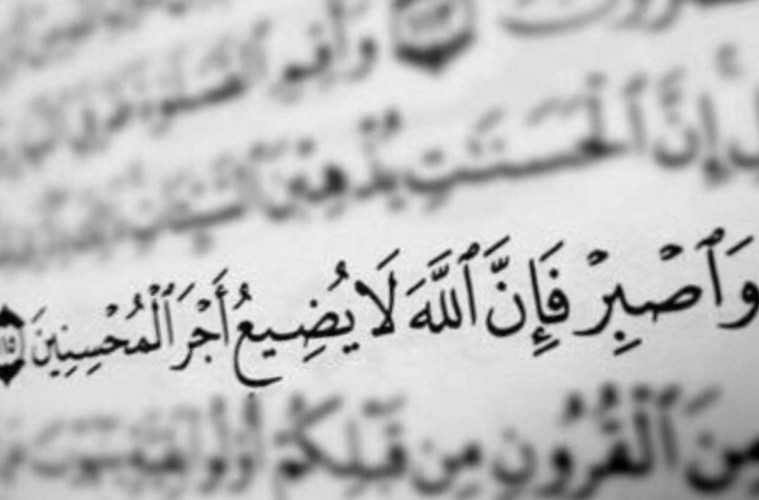 وَأَقِمِ ٱلصَّلَوٰةَ طَرَفَيِ
إِنَّ ٱلْحَسَنَٰتِ يُذْهِبْنَ ٱلسَّيِّـَٔاتِ
وَٱصْبِرْ فَإِنَّ ٱللَّهَ لَا يُضِيعُ أَجْرَ ٱلْمُحْسِنِينَ ١١٥
مِنَ ٱلْقُرُونِ مِن قَبْلِكُمْ أُو۟لُوا۟ بَقِيَّةٍ